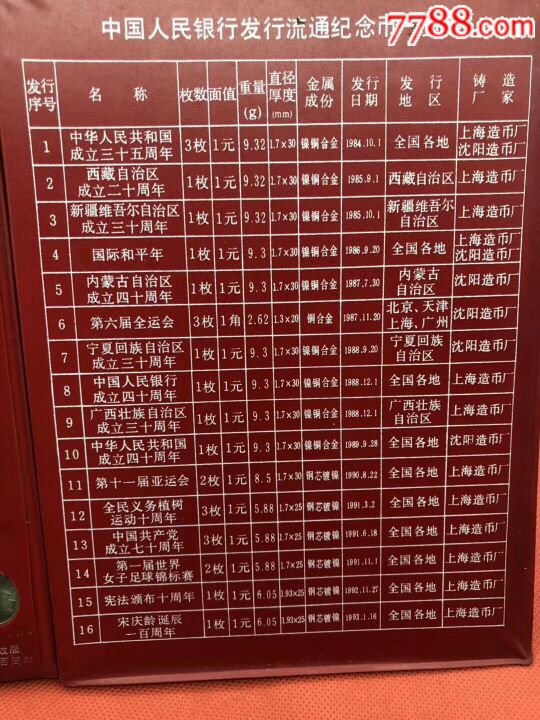 中国人民银行发行流通纪念币
7788.com
发行序号 名称 枚数 面值 重量(g) 直径厚度(mm) 金属成份 发行日期 发行地区 铸造厂家
1 中华人民共和国成立三十五周年 3枚 1元 9.32 1.7×30 镍铜合金 1984.10.1 全国各地 上海造币厂 沈阳造币厂
2 西藏自治区成立二十周年 1枚 1元 9.32 1.7×30 镍铜合金 1985.9.1 西藏自治区 上海造币厂
3 新疆维吾尔自治区成立三十周年 1枚 1元 9.32 1.7×30 镍铜合金 1985.10.1 新疆维吾尔自治区 上海造币厂
4 国际和平年 1枚 1元 9.3 1.7×30 镍铜合金 1986.9.20 全国各地 上海造币厂 沈阳造币厂
5 内蒙古自治区成立四十周年 1枚 1元 9.3 1.7×30 镍铜合金 1987.7.30 内蒙古自治区 沈阳造币厂
6 第六届全运会 3枚 1角 2.62 1.3×20 铜合金 1987.11.20 北京、天津上海、广州 沈阳造币厂
7 宁夏回族自治区成立三十周年 1枚 1元 9.3 1.7×30 镍铜合金 1988.9.20 宁夏回族自治区 沈阳造币厂
8 中国人民银行成立四十周年 1枚 1元 9.3 1.7×30 镍铜合金 1988.12.1 全国各地 上海造币厂
9 广西壮族自治区成立三十周年 1枚 1元 9.3 1.7×30 镍铜合金 1988.12.1 广西壮族自治区 上海造币厂
10 中华人民共和国成立四十周年 1枚 1元 9.3 1.7×30 镍铜合金 1989.9.28 全国各地 沈阳造币厂
11 第十一届亚运会 2枚 1元 8.5 1.7×30 钢芯镀镍 1990.8.22 全国各地 上海造币厂
12 全民义务植树运动十周年 3枚 1元 5.88 1.7×25 钢芯镀镍 1991.3.2 全国各地 上海造币厂
13 中国共产党成立七十周年 3枚 1元 5.88 1.7×25 钢芯镀镍 1991.6.18 全国各地 上海造币厂
14 第一届世界女子足球锦标赛 2枚 1元 5.88 1.7×25 钢芯镀镍 1991.11.1 全国各地 上海造币厂
15 宪法颁布十周年 1枚 1元 6.05 1.93×25 钢芯镀镍 1992.11.27 全国各地 上海造币厂
16 宋庆龄诞辰一百周年 1枚 1元 6.05 1.93×25 钢芯镀镍 1993.1.16 全国各地 上海造币厂
百周年